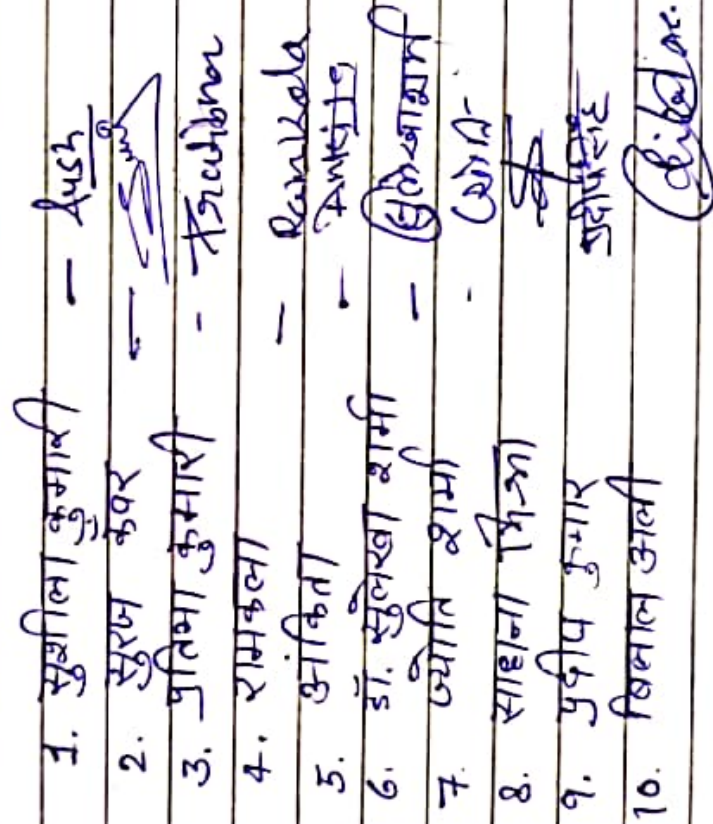 1. सुशीला कुमारी — Sush
2. सुरज कंवर —
3. प्रतिभा कुमारी - Pratibha
4. रामकला — Ramkala
5. अंकिता - Ankita
6. डॉ. सुलेखा शर्मा — सुलेखा शर्मा
7. ज्योति शर्मा - ज्योति
8. साहाना मिश्रा
9. प्रदीप कुमार प्रदीप
10. बिलाल अली